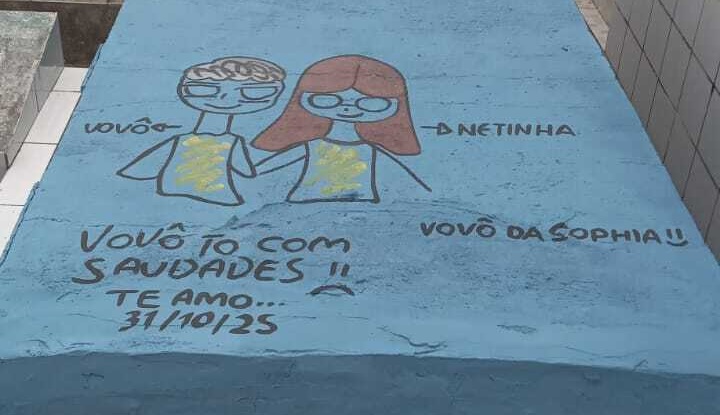 VOVÔ
NETINHA
VOVÔ DA SOPHIA!!
VOVÔ TO COM
SAUDADES !!
TE AMO...
31/10/25